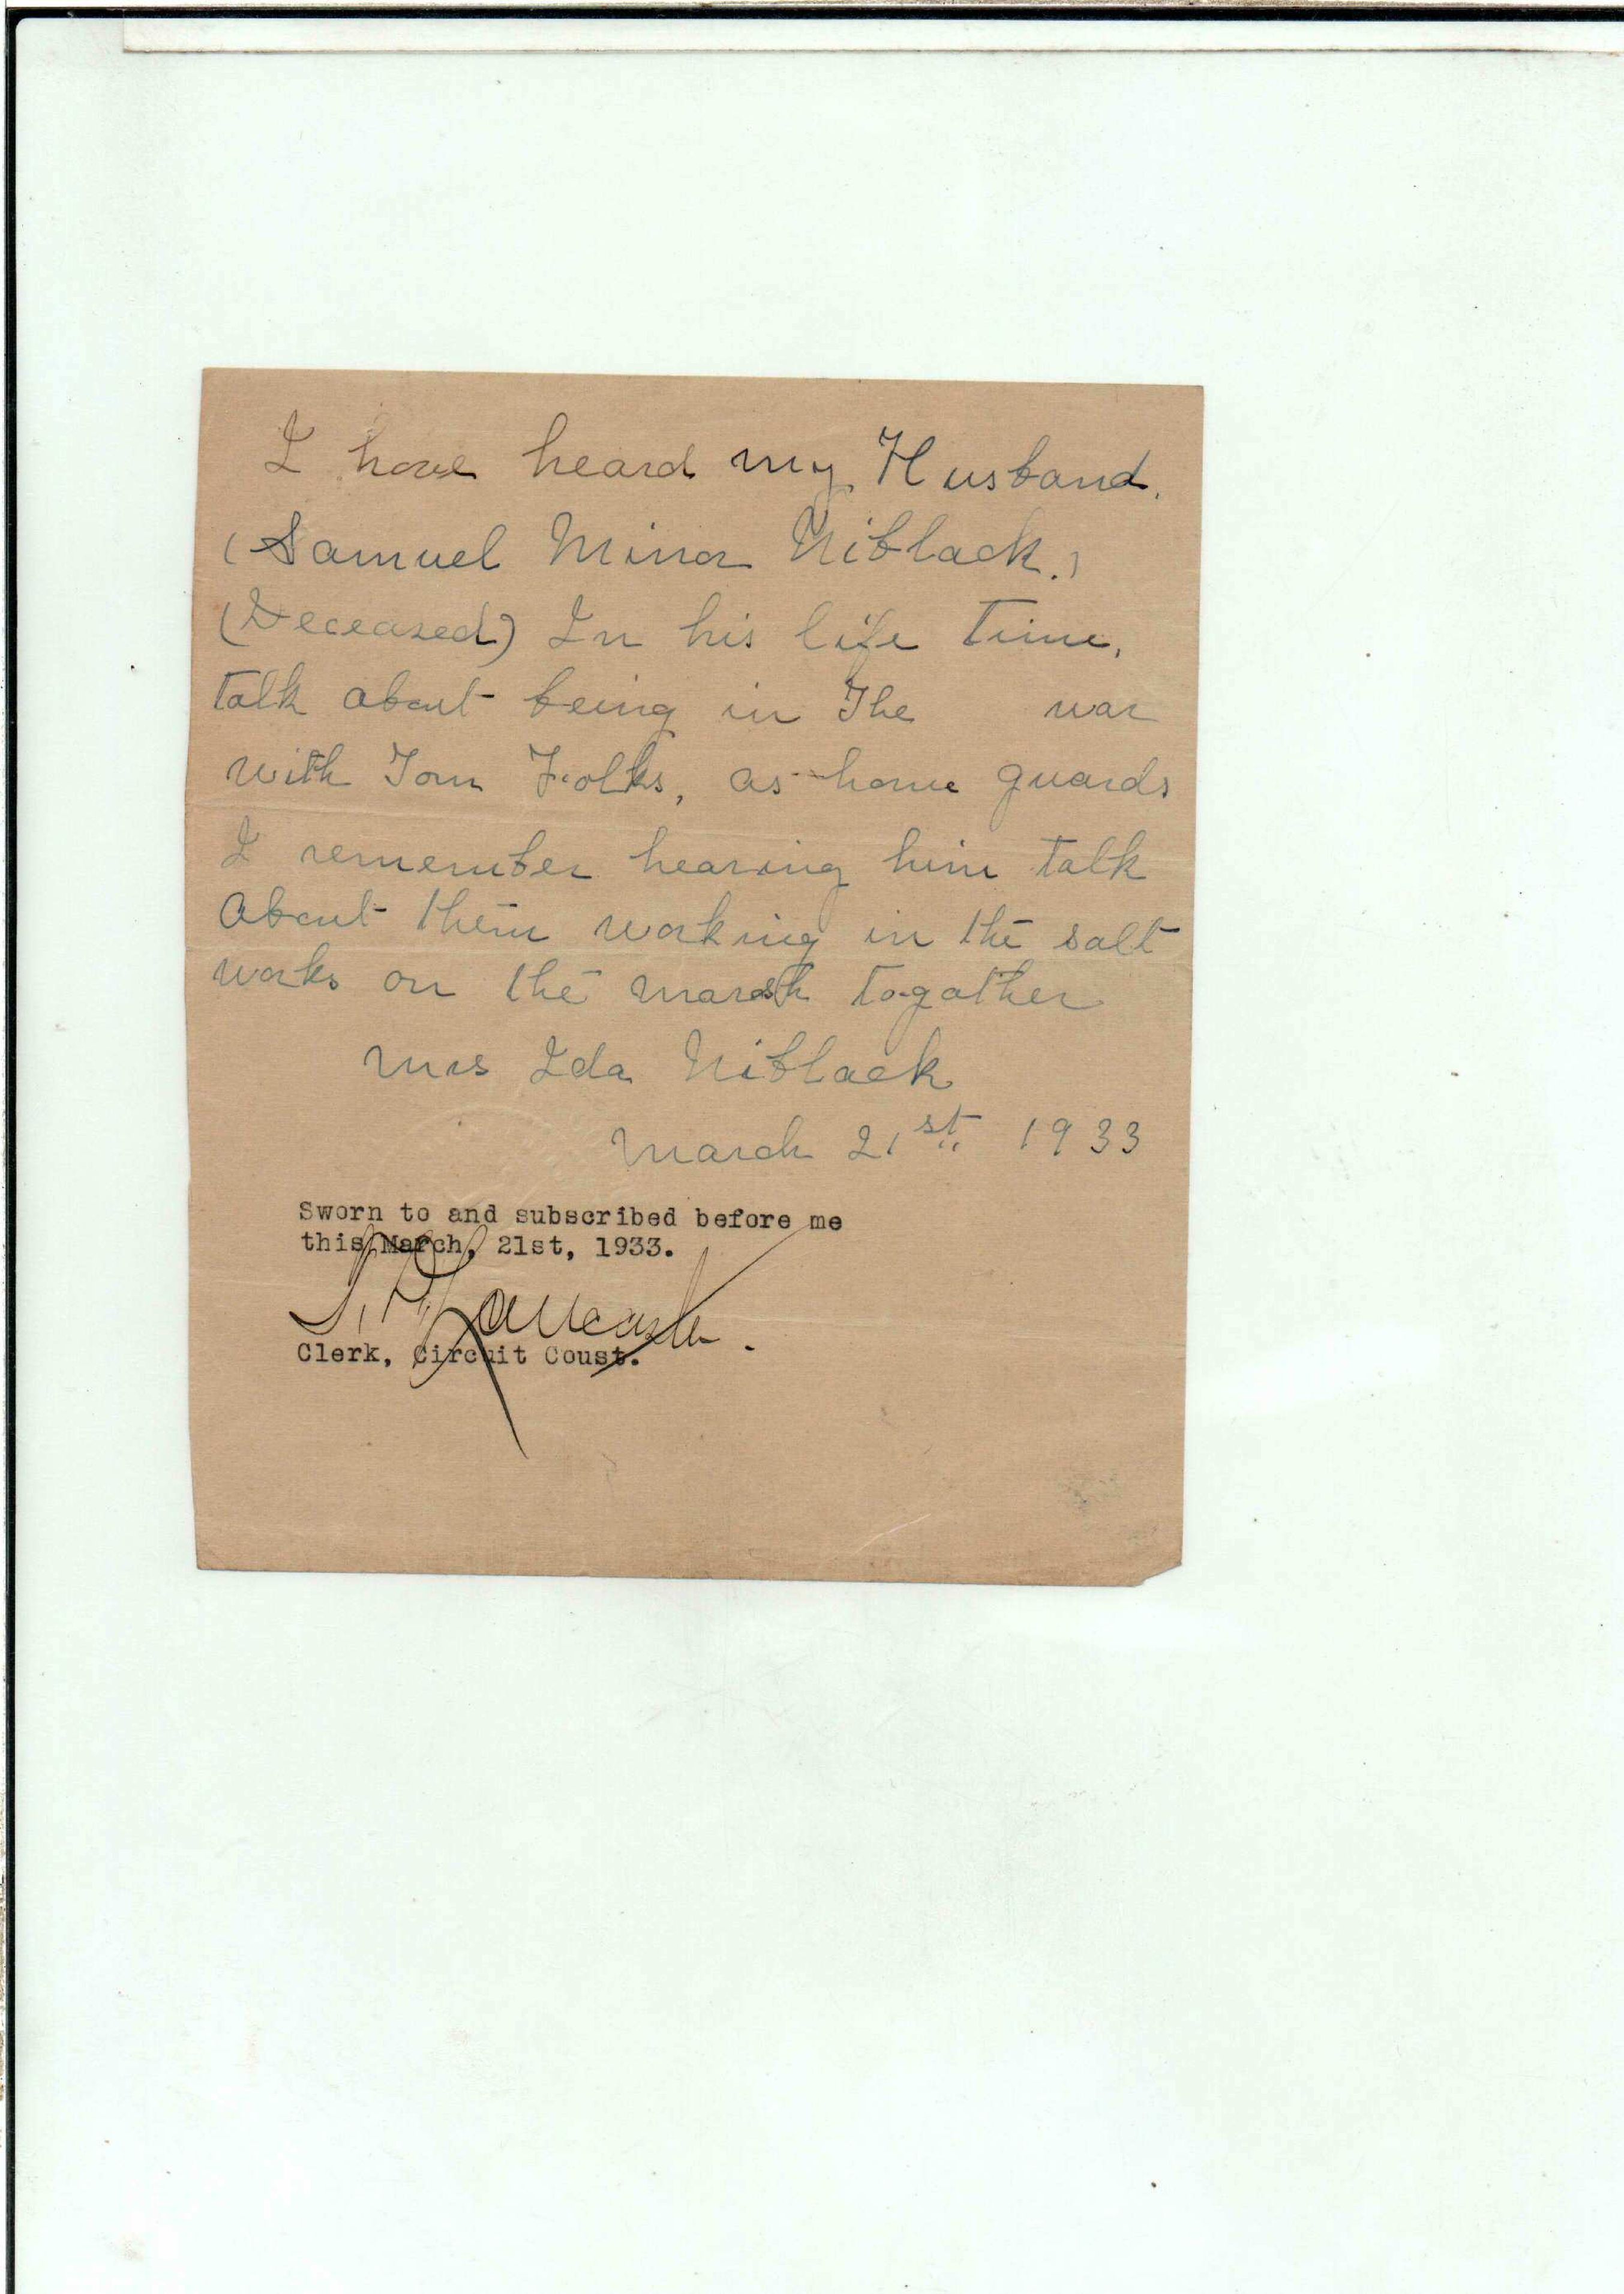 I have heard my Husband.
(Samuel Minor Niblack.)
(Deceased) In his life Time,
Talk about being in The war
with Tom Folks, as home guards
I remember hearing him Talk
About them working in the salt
works on the marsh Togather
Mrs Ida Niblack
March 21st 1933
Sworn to and subscribed before me
this March, 21st, 1933.
Lancaster.
Clerk, Circuit Coust.